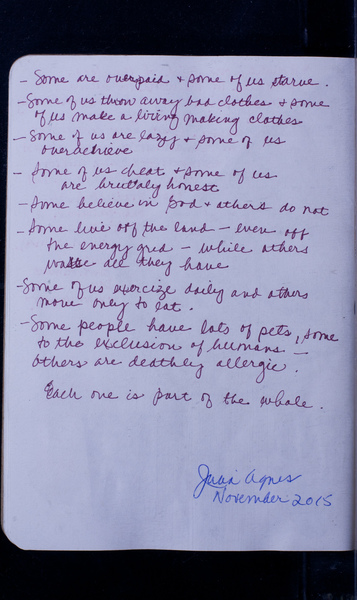 - Some are overpaid + some of us starve.
- Some of us throw away bad clothes + some
of us make a living making clothes
- Some of us are lazy + some of us
overachieve
- Some of us cheat + some of us
are brutaly honest
- Some believe in God + others do not
- Some live off the land - even off
the energy grid - while others
waste all they have
- Some of us exercize daily and others
move only to eat.
- Some people have lots of pets, some
to the exclusion of humans -
others are deathly allergic.
Each one is part of the whole.
Agnes
November 2015